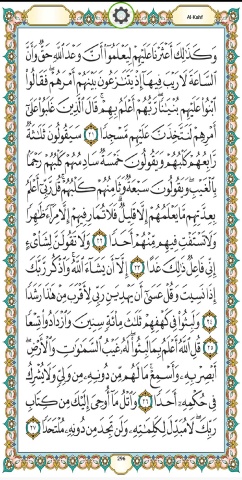 Al-Kahf
وَكَذَٰلِكَ أَعْثَرْنَا عَلَيْهِمْ لِيَعْلَمُوٓا۟ أَنَّ وَعْدَ ٱللَّهِ حَقٌّ وَأَنَّ
ٱلسَّاعَةَ لَا رَيْبَ فِيهَآ إِذْ يَتَنَٰزَعُونَ بَيْنَهُمْ أَمْرَهُمْ ۖ فَقَالُوا۟
ٱبْنُوا۟ عَلَيْهِم بُنْيَٰنًا ۖ رَّبُّهُمْ أَعْلَمُ بِهِمْ ۚ قَالَ ٱلَّذِينَ غَلَبُوا۟ عَلَىٰٓ
أَمْرِهِمْ لَنَتَّخِذَنَّ عَلَيْهِم مَّسْجِدًا ٢١ سَيَقُولُونَ ثَلَٰثَةٌ
رَّابِعُهُمْ كَلْبُهُمْ وَيَقُولُونَ خَمْسَةٌ سَادِسُهُمْ كَلْبُهُمْ رَجْمًۢا
بِٱلْغَيْبِ ۖ وَيَقُولُونَ سَبْعَةٌ وَثَامِنُهُمْ كَلْبُهُمْ ۚ قُل رَّبِّىٓ أَعْلَمُ
بِعِدَّتِهِم مَّا يَعْلَمُهُمْ إِلَّا قَلِيلٌ ۗ فَلَا تُمَارِ فِيهِمْ إِلَّا مِرَآءً ظَٰهِرًا
وَلَا تَسْتَفْتِ فِيهِم مِّنْهُمْ أَحَدًا ٢٢ وَلَا تَقُولَنَّ لِشَا۟ىْءٍ
إِنِّى فَاعِلٌ ذَٰلِكَ غَدًا ٢٣ إِلَّآ أَن يَشَآءَ ٱللَّهُ ۚ وَٱذْكُر رَّبَّكَ
إِذَا نَسِيتَ وَقُلْ عَسَىٰٓ أَن يَهْدِيَنِ رَبِّى لِأَقْرَبَ مِنْ هَٰذَا رَشَدًا
٢٤ وَلَبِثُوا۟ فِى كَهْفِهِمْ ثَلَٰثَ مِا۟ئَةٍ سِنِينَ وَٱزْدَادُوا۟ تِسْعًا
٢٥ قُلِ ٱللَّهُ أَعْلَمُ بِمَا لَبِثُوا۟ ۖ لَهُۥ غَيْبُ ٱلسَّمَٰوَٰتِ وَٱلْأَرْضِ ۖ
أَبْصِرْ بِهِۦ وَأَسْمِعْ ۚ مَا لَهُم مِّن دُونِهِۦ مِن وَلِىٍّ وَلَا يُشْرِكُ
فِى حُكْمِهِۦٓ أَحَدًا ٢٦ وَٱتْلُ مَآ أُوحِىَ إِلَيْكَ مِن كِتَابِ
رَبِّكَ ۖ لَا مُبَدِّلَ لِكَلِمَٰتِهِۦ وَلَن تَجِدَ مِن دُونِهِۦ مُلْتَحَدًا ٢٧
296